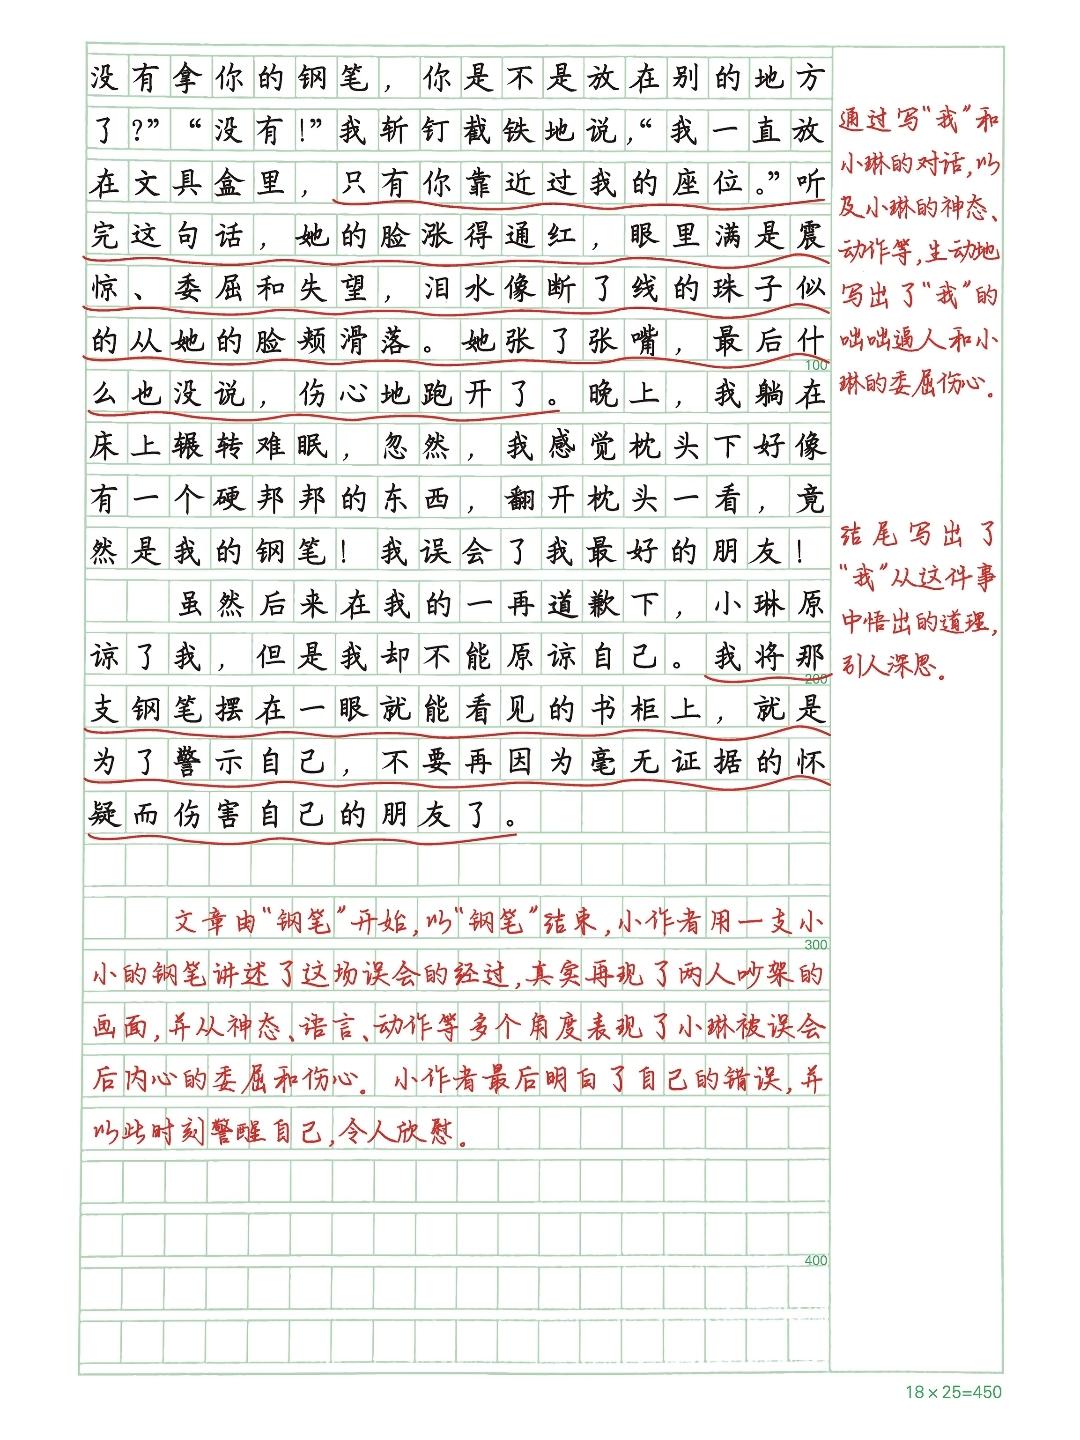 没有拿你的钢笔，你是不是放在别的地方
了?”“没有!”我斩钉截铁地说,“我一直放
在文具盒里，只有你靠近过我的座位。”听
完这句话，她的脸涨得通红，眼里满是震
惊、委屈和失望，泪水像断了线的珠子似
的从她的脸颊滑落。她张了张嘴，最后什
100
么也没说，伤心地跑开了。晚上，我躺在
床上辗转难眠，忽然，我感觉枕头下好像
有一个硬邦邦的东西，翻开枕头一看，竟
然是我的钢笔！我误会了我最好的朋友！
虽然后来在我的一再道歉下，小琳原
谅了我，但是我却不能原谅自己。我将那
200
支钢笔摆在一眼就能看见的书柜上，就是
为了警示自己，不要再因为毫无证据的怀
疑而伤害自己的朋友了。
文章由“钢笔”开始,以“钢笔”结束,小作者用一支小
300
小的钢笔讲述了这场误会的经过,真实再现了两人吵架的
画面,并从神态、语言、动作等多个角度表现了小琳被误会
后内心的委屈和伤心。小作者最后明白了自己的错误,并
以此时刻警醒自己,令人欣慰。
400
通过写“我”和
小琳的对话,以
及小琳的神态、
动作等,生动地
写出了“我”的
咄咄逼人和小
琳的委屈伤心。
结尾写出了
“我”从这件事
中悟出的道理,
引人深思。
18×25=450